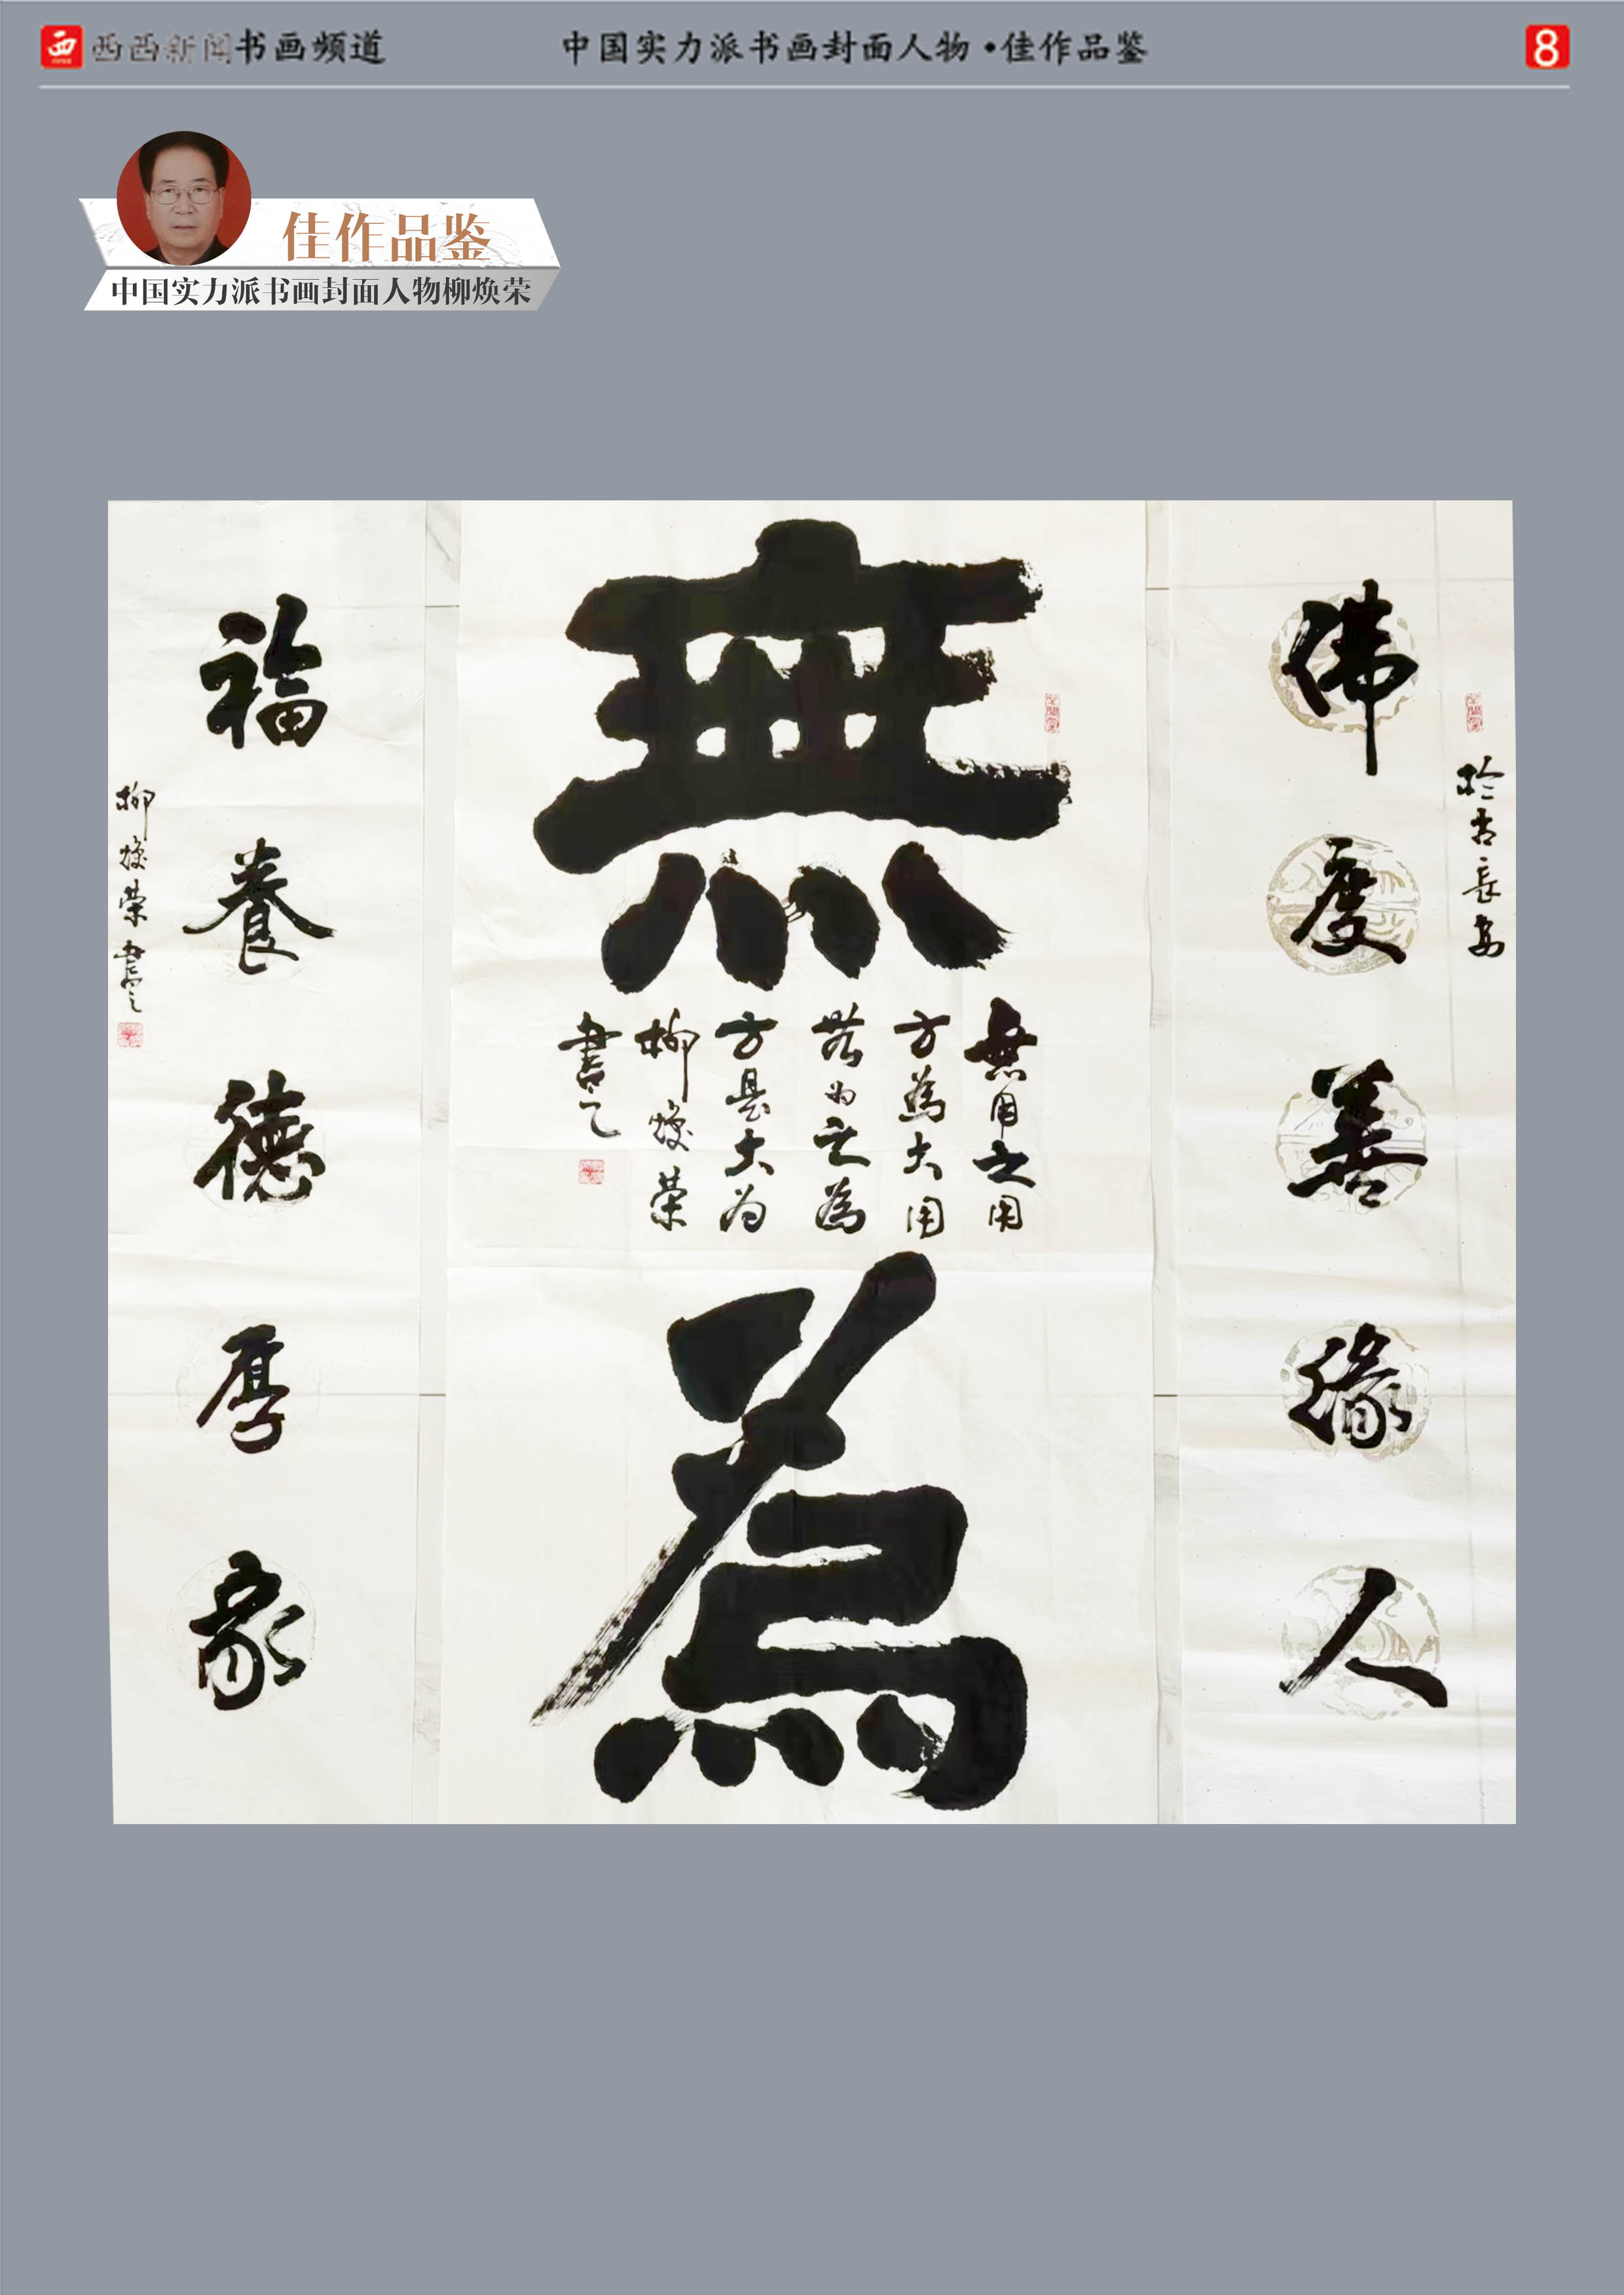 西 西西新闻书画频道
中国实力派书画封面人物·佳作品鉴
8
佳作品鉴
中国实力派书画封面人物柳焕荣
於古長安
佛度善缘人
無
無用之用
方為大用
無为之為
方是大为
柳焕荣
書之
為
福養德厚家
柳焕荣書之